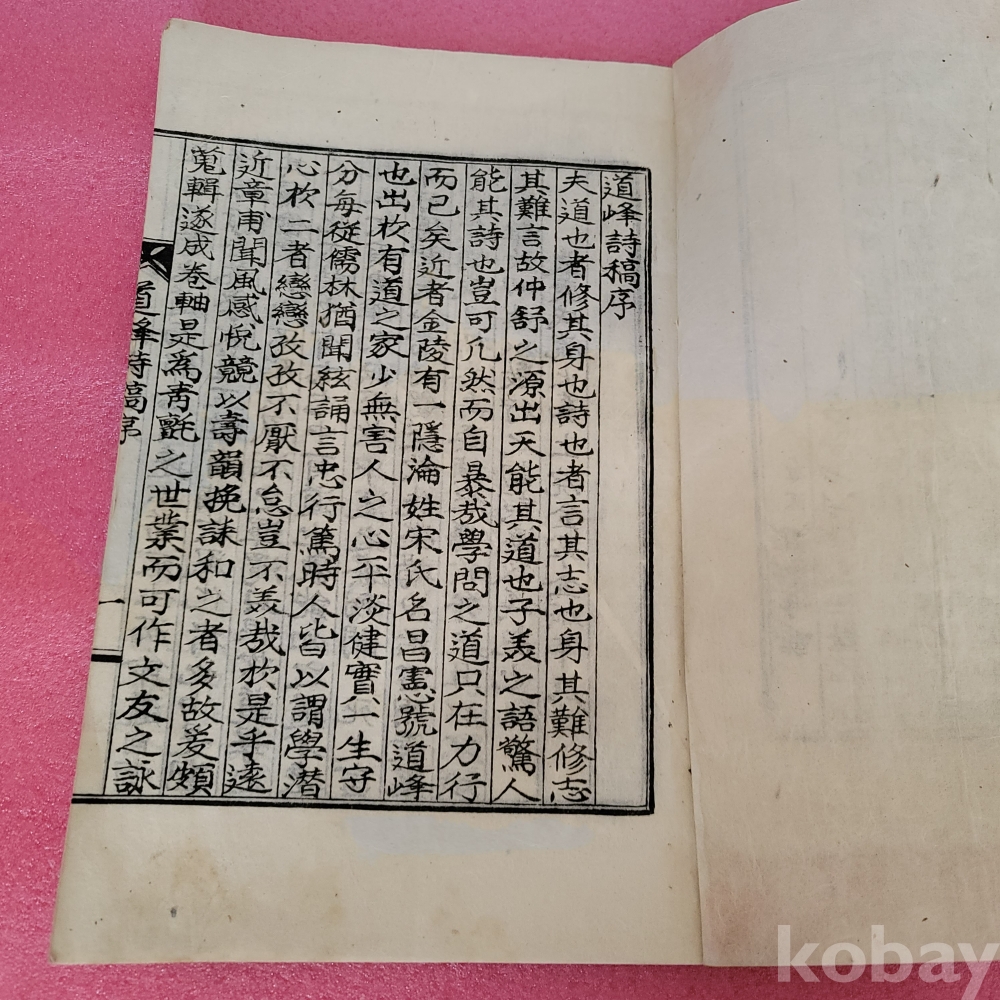 道峰詩稿序
夫道也者修其身也詩也者言其志也身其難修志
其難言故仲舒之源出天能其道也子美之語驚人
能其詩也豈可凡然而自暴哉學問之道只在力行
而已矣近者金陵有一隱淪姓宋氏名昌憲號道峰
也出於有道之家少無害人之心平淡健實一生守
分每從儒林猶聞絃誦言忠行篤時人皆以謂學潛
心於二者戀戀孜孜不厭不怠豈不羡哉於是乎遠
近章甫聞風感悅競以壽韻挽誄和之者多故爰頗
蒐輯遂成卷軸是爲靑氈之世業而可作文友之詠
道峰詩稿序
一
kobay